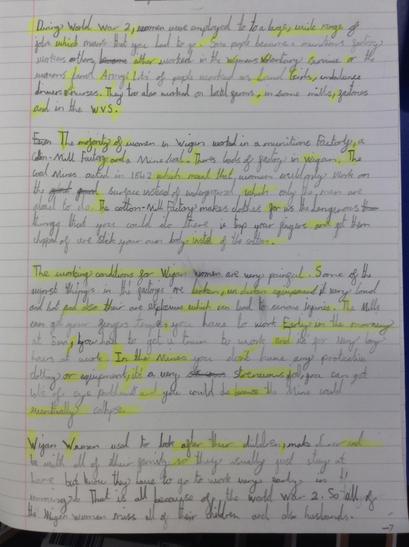 During World War 2, women were employed to do a large, wide range of
jobs which meant that you had to go. Some people became a munitions factory
workers others, other worked in the womens Voluntary Service or the
womens Land Army. Lots of people worked as Land Girls, ambulance
drivers nurses. They too also worked on both farms, in some mills, factories
and in the W.V.S.
The majority of women in Wigan worked in a munitions Factory, a
cotton-Mill Factory and a Mine. Theres loads of factory in Wigan. The
coal Mines acted in 1842 which meant that women would only work on
the surface instead of underground which only the men are
to do. The cotton-Mill Factory makes clothes for us the dangerous
things that you could do there is trap your fingers and get them
chopped off or stick your own body instead of the cotton.
The working conditions for Wigan women are very painful. Some of the
worst things in the factories are broken, un-driven equipment, very loud
and hot and also their are explosions which can lead to serious injuries. The Mills
can get your fingers you have to work Early in the morning
at 5am, you have to get a train to work and its for very long
hours at work. In the Mines you dont have any protective
clothing or equipment, its a very strenuous job, you can get
lots of eye problems and you could the Mine could
eventually collapse.
Wigan Women used to look after their children, make dinner and
be with all of their family so they usually just stay at
home but now they have to go to work very early in
mornings. That is all because of the World War 2. So all of
the Wigan women miss all of their children and also husbands.